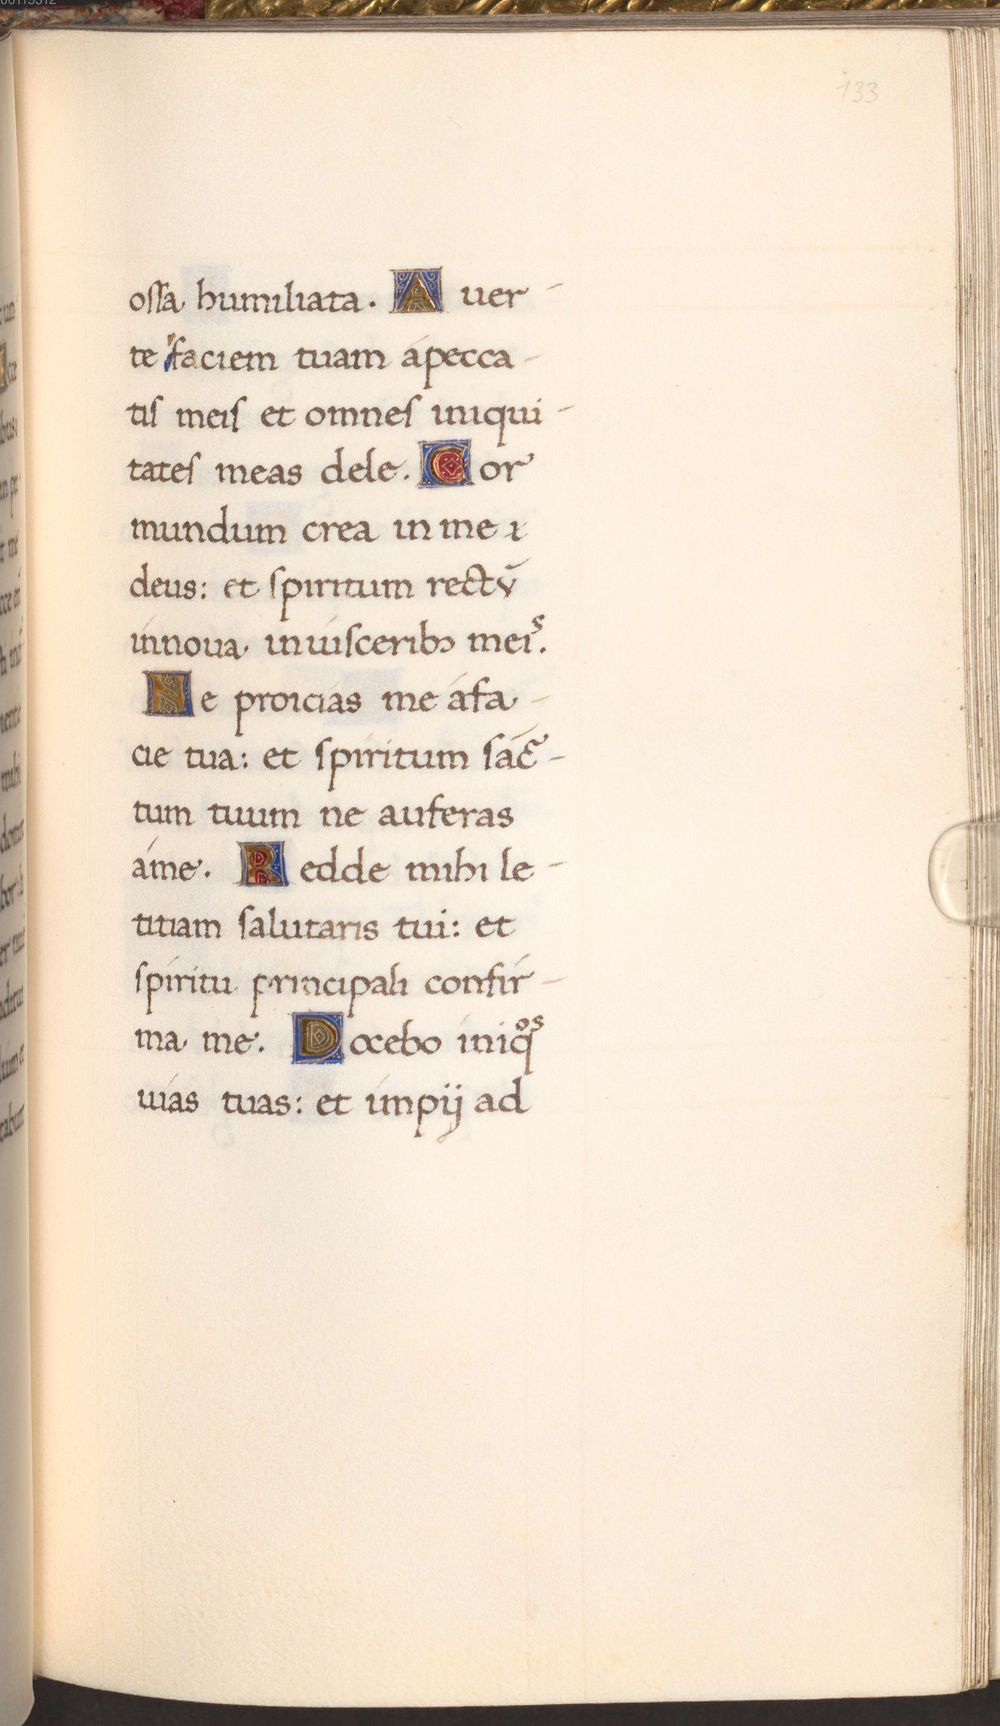 133
ossa humiliata. Auer-
te faciem tuam ápecca-
tis meis et omnes iniqui-
tates meas dele. Cor
mundum crea in me
deus: et spiritum rectū
innoua inuiscerib9 meis.
Ne proicias me áfa-
cie tua: et spiritum sác̄-
tum tuum ne auferas
áme. Redde mihi le-
titiam salutaris tui: et
spiritu principali confir-
ma me. Docebo iniqos
uias tuas: et impij ad